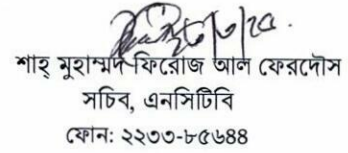 শাহ্ মুহাম্মদ ফিরোজ আল ফেরদৌস
সচিব, এনসিটিবি
ফোন: ২২৩৩-৮৫৬৪৪